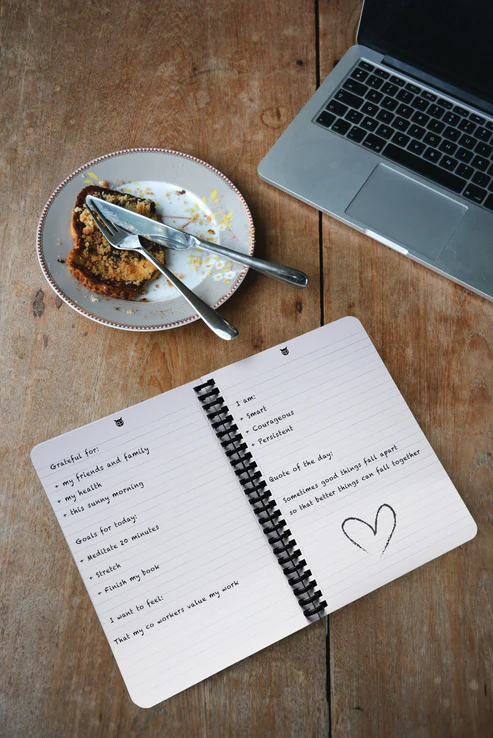 Grateful for:
+ my friends and family
+ my health
+ this sunny morning
Goals for today:
+ Meditate 20 minutes
+ Stretch
+ Finish my book
I want to feel:
That my co workers value my work
I am:
+ Smart
+ Courageous
+ Persistent
Quote of the day:
Sometimes good things fall apart
so that better things can fall together